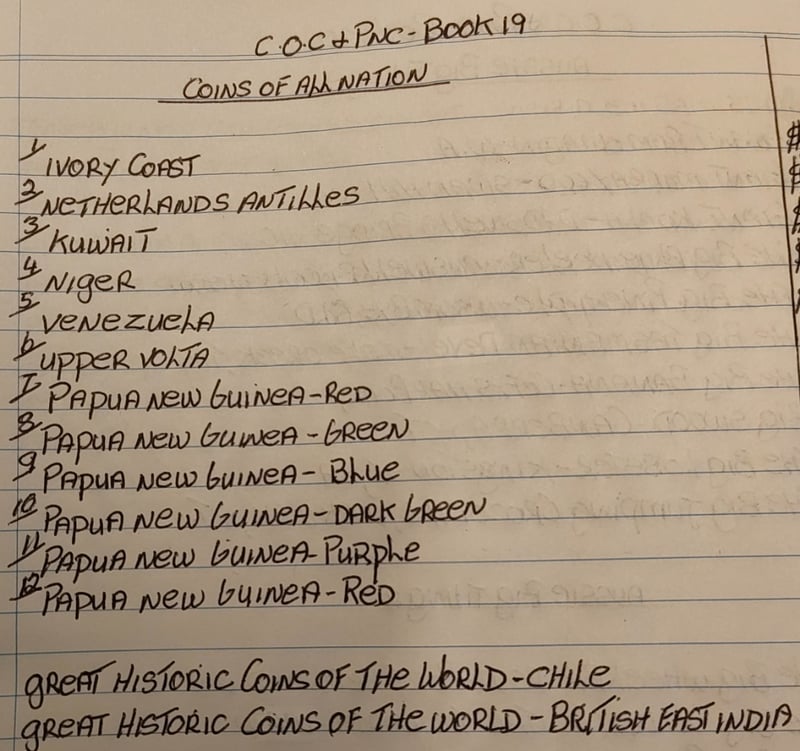 C.O.C & PNC - BOOK 19
COINS OF ALL NATION
1 IVORY COAST
2 NETHERLANDS ANTILLES
3 KUWAIT
4 NIGER
5 VENEZUELA
6 UPPER VOLTA
7 PAPUA NEW GUINEA - RED
8 PAPUA NEW GUINEA - GREEN
9 PAPUA NEW GUINEA - BLUE
10 PAPUA NEW GUINEA - DARK GREEN
11 PAPUA NEW GUINEA - PURPLE
12 PAPUA NEW GUINEA - RED
GREAT HISTORIC COINS OF THE WORLD - CHILE
GREAT HISTORIC COINS OF THE WORLD - BRITISH EAST INDIA